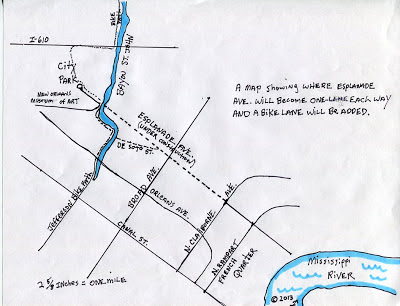 AVE.
I-610
BAYOU ST. JOHN
City
PARK
NEW ORLEANS
MUSEUM OF ART
A MAP SHOWING WHERE ESPLANADE
AVE. WILL BECOME ONE-LANE EACH WAY
AND A BIKE LANE WILL BE ADDED.
ESPLANADE AVE.
(UNDER CONSTRUCTION)
DE SOTO ST.
JEFFERSON BIKE PATH
BROAD AVE.
ORLEANS AVE.
CANAL ST.
N. CLAIBORNE AVE.
N. RAMPART
FRENCH QUARTER
Mississippi
RIVER
2 5/8 INCHES = ONE MILE
© 2013